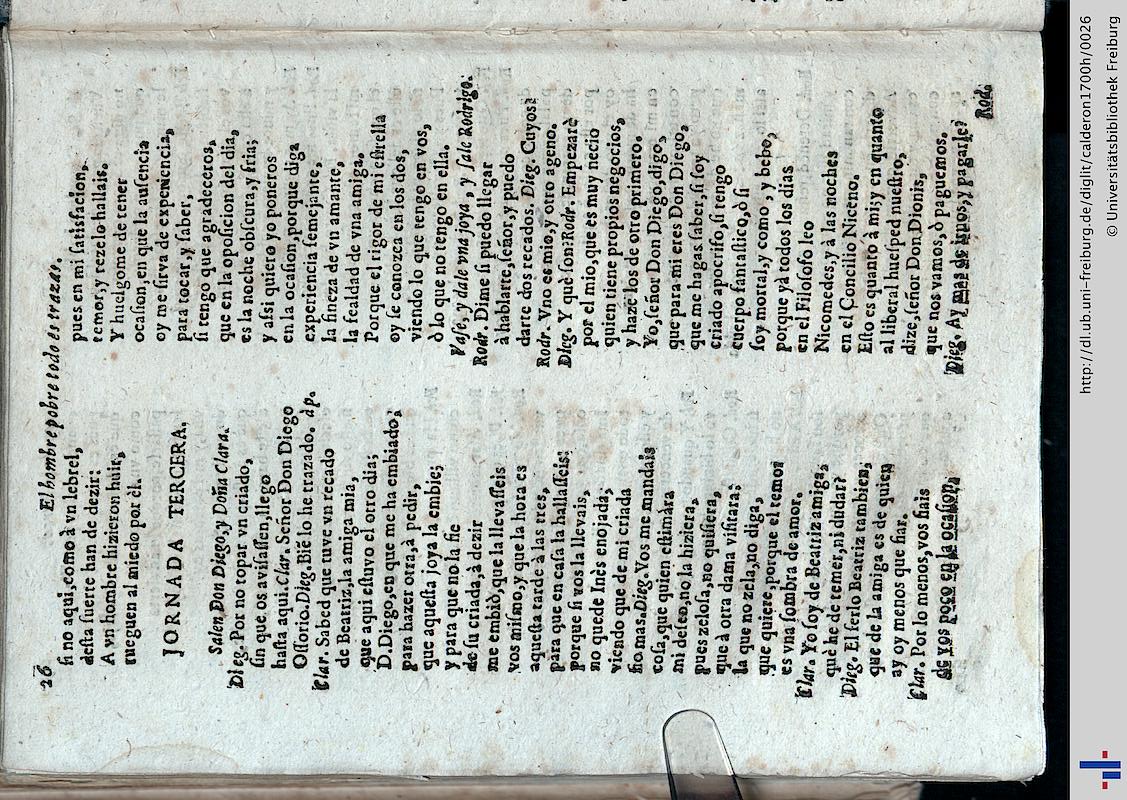 26
El hombre pobre todo es trazas.
si no aqui, como à vn lebrel,
desta suerte han de dezir:
A vn hombre hizieron huir,
rueguen al miedo por èl.
JORNADA TERCERA.
Salen Don Diego, y Doña Clara.
Dieg. Por no topar vn criado,
sin que os avisassen, llego
hasta aqui. Clar. Señor Don Diego
Ossorio. Dieg. Biē lo he trazado. ap.
Clar. Sabed que tuve vn recado
de Beatriz, la amiga mia,
que aqui estuvo el otro dia;
D. Diego, en que me ha embiado,
para hazer otra, à pedir,
que aquesta joya la embie;
y para que no la fie
de su criada, à dezir
me embiò, que la llevasseis
vos mismo, y que la hora es
aquesta tarde à las tres,
para que en casa la hallasseis:
porque si vos la llevais,
no quede Inès enojada,
viendo que de mi criada
fio mas. Dieg. Vos me mandais
cosa, que quien estimàra
mi deseo, no la hiziera,
pues zelosa, no quisiera,
que à otra dama visitara;
la que no zela, no diga,
que quiere, porque el temor
es vna sombra de amor.
Clar. Yo soy de Beatriz amiga,
què he de temer, ni dudar?
Dieg. El serlo Beatriz tambien,
que de la amiga es de quien
ay oy menos que fiar.
Clar. Por lo menos, vos hais
de vos poco en la ocasion,
pues en mi satisfacion,
temor, y rezelo hallais.
Y huelgome de tener
ocasion, en que la ausencia
oy me sirva de experiencia,
para tocar, y saber,
si tengo que agradeceros,
que en la oposicion del dia,
es la noche obscura, y fria;
y assi quiero yo poneros
en la ocasion, porque diga
experiencia semejante,
la fineza de vn amante,
la fealdad de vna amiga.
Porque el rigor de mi estrella
oy se conozca en los dos,
viendo lo que tengo en vos,
ò lo que no tengo en ella.
Vase, y dale vna joya, y sale Rodrigo.
Rodr. Dime si puedo llegar
à hablarte, señor, y puedo
darte dos recados. Dieg. Cuyos?
Rodr. Vno es mio, y otro ageno.
Dieg. Y què son? Rodr. Empezarè
por el mio, que es muy necio
quien tiene propios negocios,
y haze los de otro primero.
Yo, señor Don Diego, digo,
que para mi eres Don Diego,
que me hagas saber, si soy
criado apocrifo, si tengo
cuerpo fantastico, ò si
soy mortal, y como, y bebo,
porque yà todos los dias
en el Filosofo leo
Nicomedes, y à las noches
en el Concilio Niceno.
Esto es quanto à mi; y en quanto
al liberal huesped nuestro,
dize, señor Don Dionis,
que nos vamos, ò paguemos.
Dieg. Ay mas de irnos, y pagarle?
Rod.
http://dl.ub.uni-freiburg.de/diglit/calderon1700h/0026
© Universitätsbibliothek Freiburg